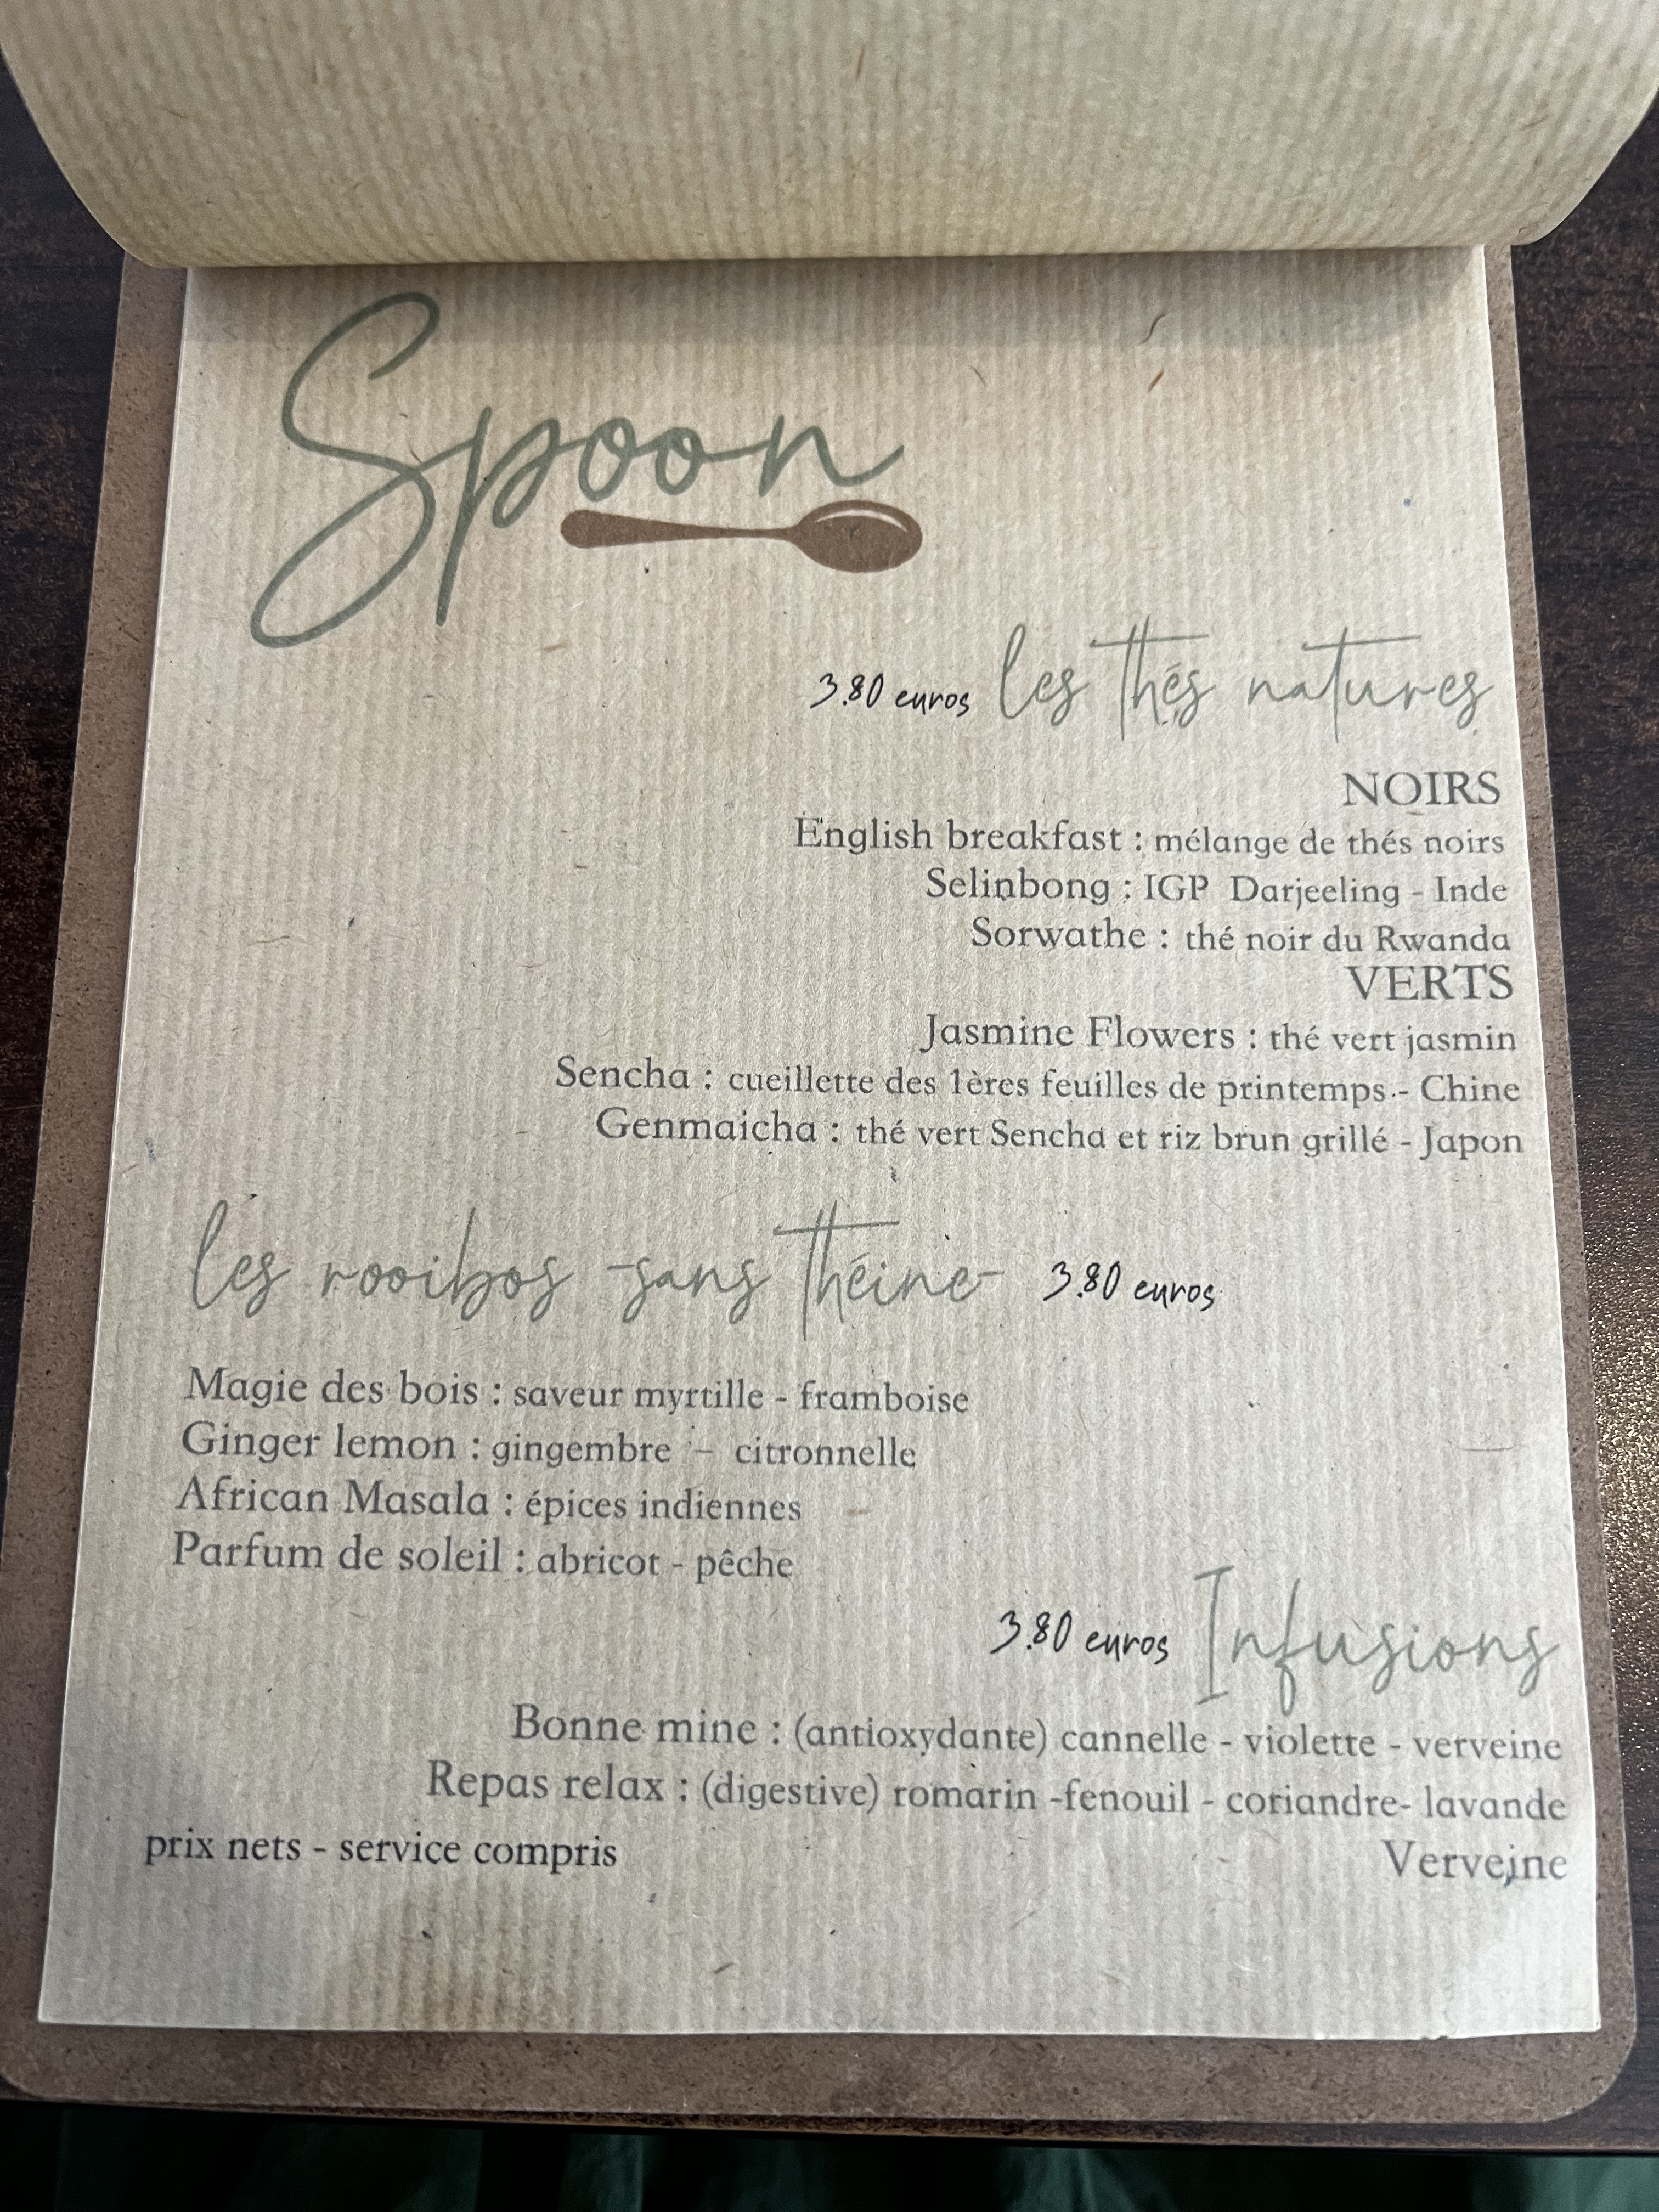 Spoon
3.80 euros les thés natures
NOIRS
English breakfast : mélange de thés noirs
Selinbong : IGP Darjeeling - Inde
Sorwathe : thé noir du Rwanda
VERTS
Jasmine Flowers : thé vert jasmin
Sencha : cueillette des 1ères feuilles de printemps - Chine
Genmaicha : thé vert Sencha et riz brun grillé - Japon
les rooibos -sans théine- 3.80 euros
Magie des bois : saveur myrtille - framboise
Ginger lemon : gingembre – citronnelle
African Masala : épices indiennes
Parfum de soleil : abricot - pêche
3.80 euros Infusions
Bonne mine : (antioxydante) cannelle - violette - verveine
Repas relax : (digestive) romarin -fenouil - coriandre- lavande
prix nets - service compris Verveine